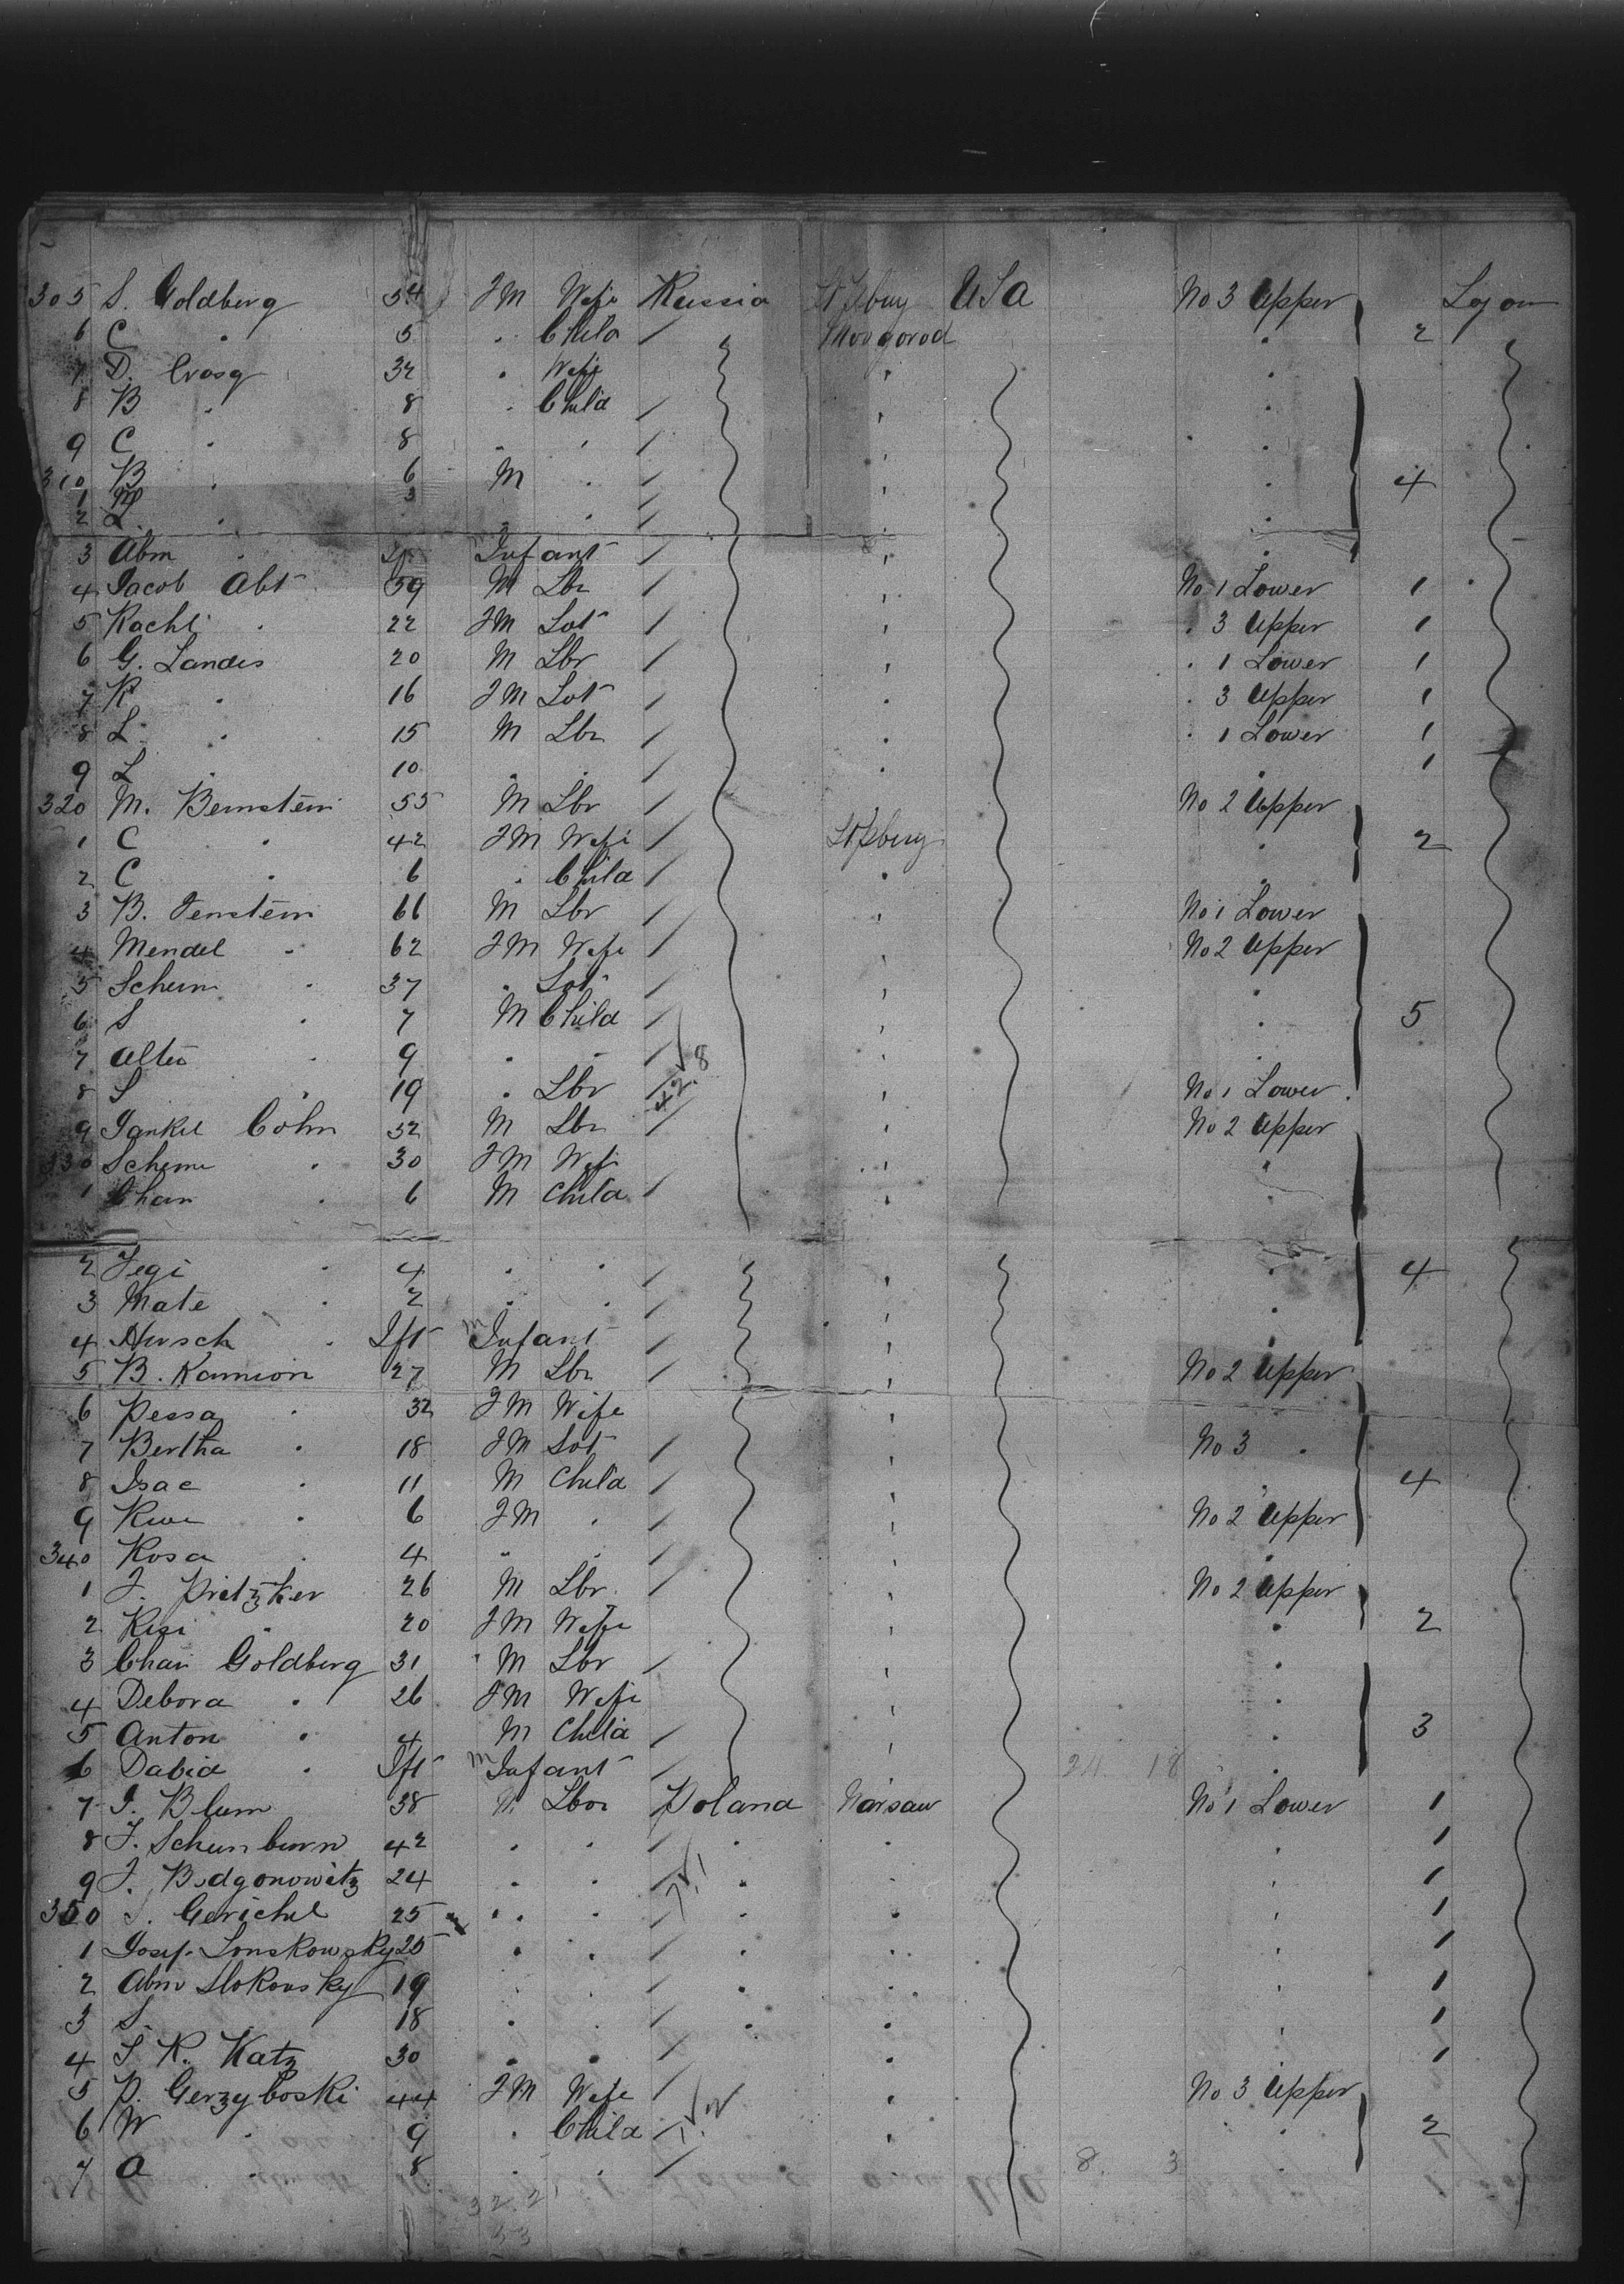 305 S. Goldberg 54 FM Wife Russia St Pbury USA No 3 Upper Lyon
6 C " 5 " Child / Novgorod " 2
7 D. Crasg 32 " Wife " "
8 B " 8 " Child / " "
9 C " 8 " " / " "
310 B " 6 M " / " " 4
1 M 3 /
2 L " " " / " "
3 Abm " Infant / " "
4 Jacob Abt 59 M Lbr / " No 1 Lower 1
5 Rachl " 22 FM Sot / " " 3 Upper 1
6 G. Landes 20 M Lbr / " " 1 Lower 1
7 R " 16 FM Sot / " " 3 Upper 1
8 L " 15 M Lbr / " " 1 Lower 1
9 L " 10 " " / " " 1
320 M. Bernstein 55 M Lbr / No 2 Upper
1 C " 42 FM Wife / St Pburg " 2
2 C " 6 " Child / " "
3 B. Fenstein 66 M Lbr / " No 1 Lower
4 Mendel " 62 FM Wife / " No 2 Upper
5 Scheim " 37 " Sot / " "
6 S " 7 M Child / " " 5
7 Alter " 9 " " / " "
8 S " 19 " Lbr / 42.8 " No 1 Lower
9 Jankel Cohn 32 M Lbr / " No 2 Upper
330 Scheme " 30 FM Wife " "
1 Chan " 6 M Child / " "
2 Fegi " 4 " " / " " 4
3 Mate " 2 " " / " "
4 Hirsch " Ift m Infant / " "
5 B. Kamion 27 M Lbr / " No 2 Upper
6 Pessa " 32 FM Wife "
7 Bertha " 18 FM Sot / " No 3 "
8 Isac " 11 M Child / " " 4
9 Riwe " 6 FM " / " No 2 Upper
340 Rosa " 4 " " / " "
1 J. Pritzker 26 M Lbr / " No 2 Upper
2 Risi " 20 FM Wife " " 2
3 Chai Goldberg 31 M Lbr / " "
4 Debora " 26 FM Wife " "
5 Anton " 4 M Child / " " 3
6 Dabid " Ift m Infant / " 24 18 "
7 I. Blum 38 M Lbor Poland Warsaw No 1 Lower 1
8 J. Scheinburn 42 " " / " " " 1
9 J. Bodgonowitz 24 " " / " " " 1
350 S. Gerichel 25 " " / " " " 1
1 Josef Lonskowsky 25 " " / " " " 1
2 Abm Slokovsky 19 " " / " " " 1
3 S. " 18 " " / " " " 1
4 S R. Katz 30 " " / " " 1
5 P. Gerzyboski 44 FM Wife / " No 3 Upper
6 W " 9 " Child / " " 2
7 A " 8 " " / 8. 3 "
32.2
53